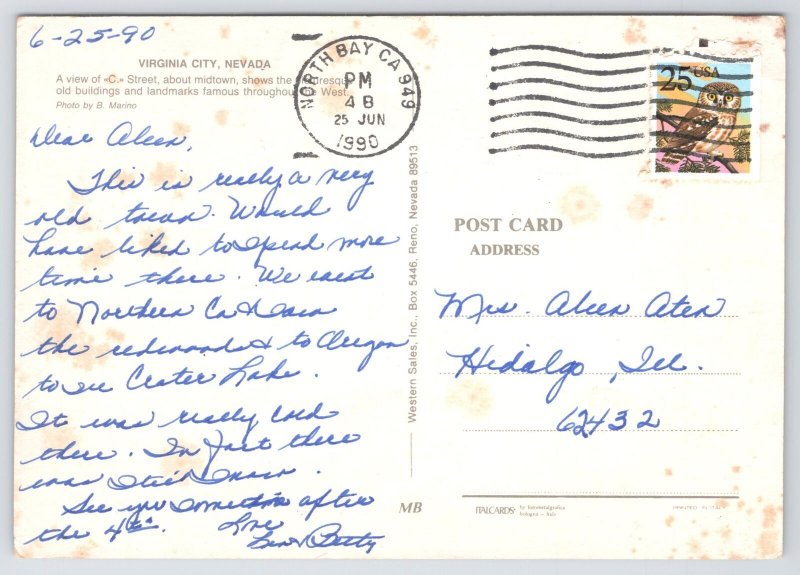 6-25-90
VIRGINIA CITY, NEVADA
A view of «C.» Street, about midtown, shows the picturesque
old buildings and landmarks famous throughout the West.
Photo by B. Marino
Dear Aleen,
This is really a very
old town. Would
have liked to spend more
time there. We went
to Northern Ca & saw
the redwoods & to Oregon
to see Crater Lake.
It was really cold
there. In fact there
was still snow.
See you sometime after
the 4th. Love
Betty
NORTH BAY CA 949
PM
4 B
25 JUN
1990
25 USA
Western Sales, Inc., Box 5446, Reno, Nevada 89513
POST CARD
ADDRESS
Mrs. Aleen Aten
Hidalgo, Ill.
62432
MB
ITALCARDS
by fotometalgrafica
bologna - Italy